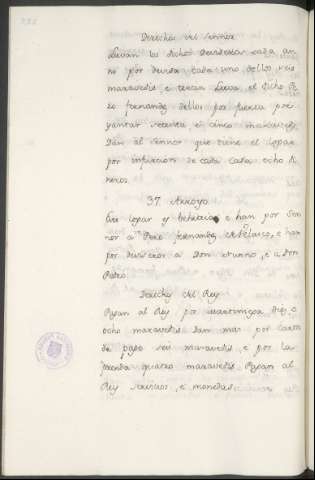 Derechos del Sennor
Lievan los dichos Deviseros cada an-
no por devisa cada uno dellos seis
maravedis e tercia. Lieva el dicho Pe-
ro fernandez dellos por fuerza por
yantar setenta e cinco maravedis.
Dan al sennor que tiene el logar
por infurcion de cada casa ocho di-
neros.
37. Arroyo
Este logar es behetria e han por Sen-
nor a Pero fernandez de Velasco, e han
por deviseros a Don Nunno, e a Don
Pedro.
Derechos del Rey
Pagan al Rey por martiniega
ocho maravedis Dan mas por carta
de pago seis maravedis, e por la
prenda quatro maravedis. Pagan al
Rey servicios, e monedas.